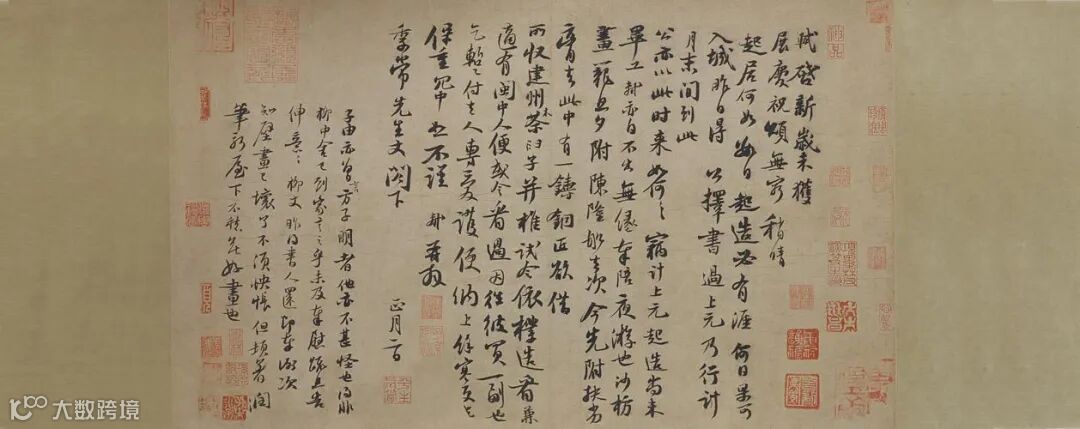 軾啓新歲未獲
展慶祝頌無窮稍晴
起居何如數日起造必有涯何日果可
入城昨日得公擇書過上元乃行計
月末間到此
公亦以此時来如何々竊計上元起造尚未
畢工軾亦自不出無縁奉陪夜游也沙枋
畫籠旦夕附陳隆船去次今先附扶劣
膏去此中有一鑄銅匠欲借
所收建州木茶臼子并椎試令依樣造看兼
適有閩中人便或令看過因往彼買一副也
乞暫付去人專愛護便納上餘寒更乞
保重冗中恕不謹軾再拜
季常先生丈閣下
正月二日
子由亦曾言方子明者他亦不甚怪也得非
柳中舍已到家言之乎未及奉慰疏且告
伸意々柳丈昨得書人還即奉謝次
知壁畫已壞了不須怏悵但頓著潤
筆新屋下不愁無好畫也
大数跨境